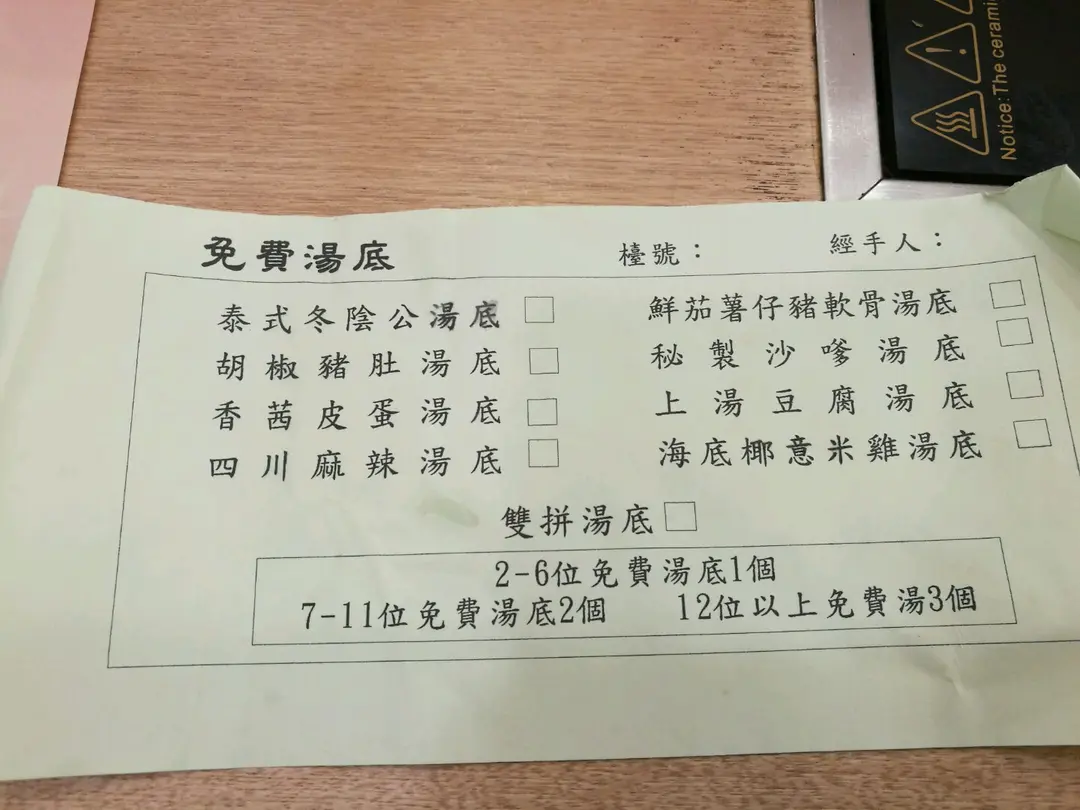 Notice:The cerami
免費湯底 檯號： 經手人：
泰式冬陰公湯底 鮮茄薯仔豬軟骨湯底
胡椒豬肚湯底 秘製沙嗲湯底
香茜皮蛋湯底 上湯豆腐湯底
四川麻辣湯底 海底椰意米雞湯底
雙拼湯底
2-6位免費湯底1個
7-11位免費湯底2個 12位以上免費湯3個